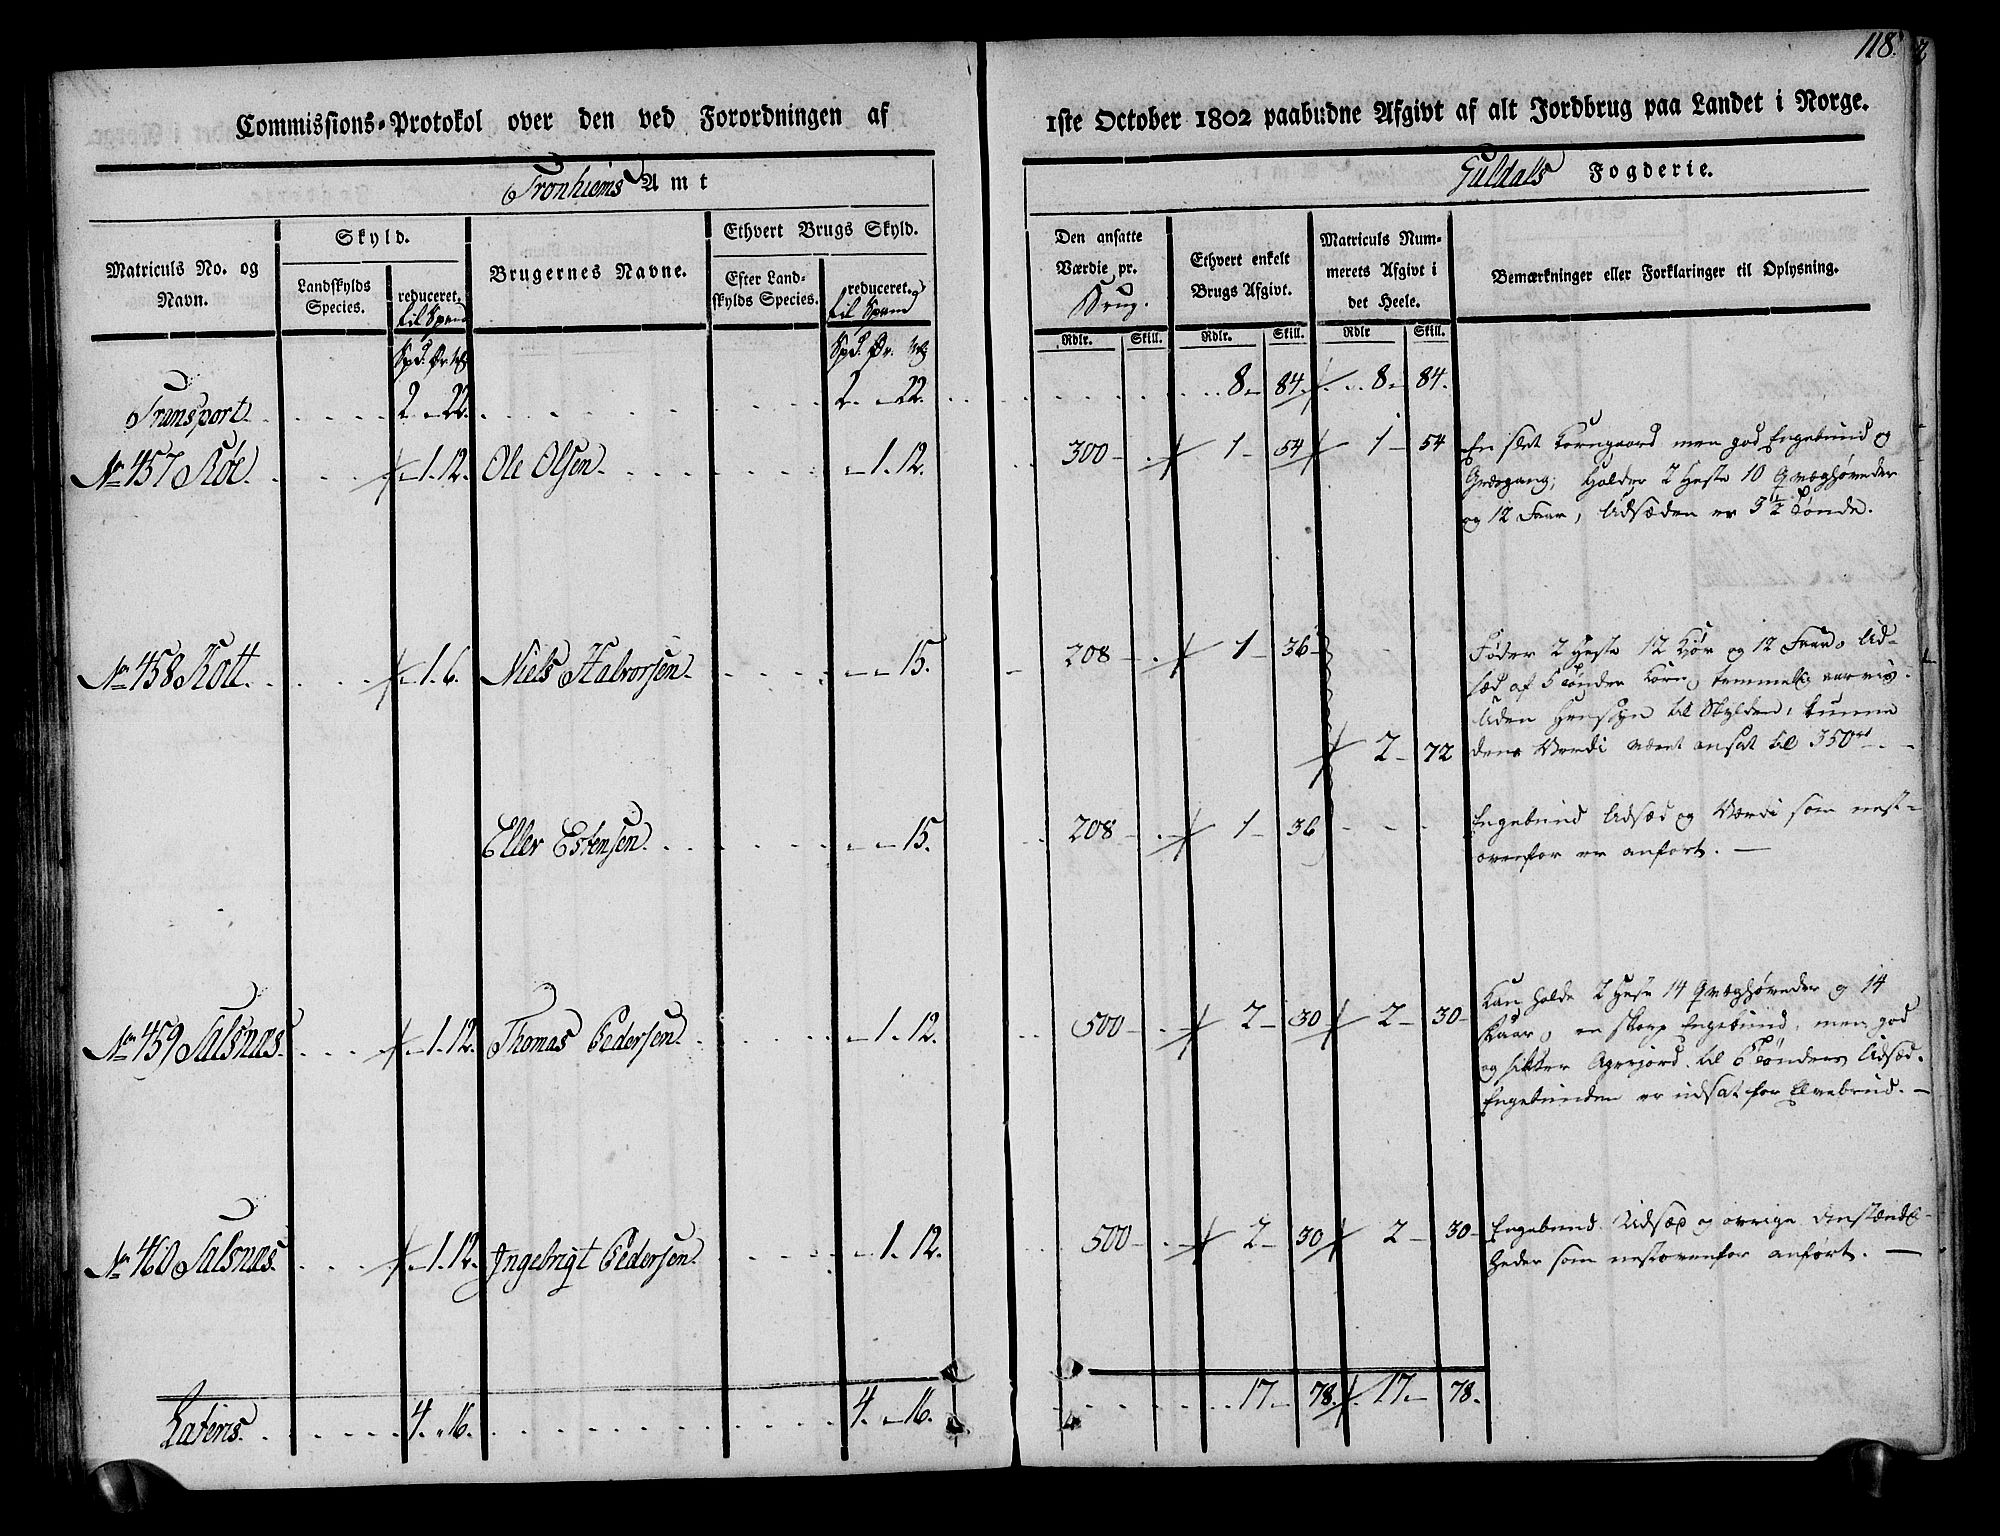 118.
Commissions-Protokol over den ved Forordningen af 1ste October 1802 paabudne Afgivt af alt Jordbrug paa Landet i Norge.
Tronhiems Amt
Guldals Fogderie.
Matriculs No. og Navn.
Skyld.
Landskylds Species.
reduceret til Spand
Brugernes Navne.
Ethvert Brugs Skyld.
Efter Landskylds Species.
reduceret til Spand
Den ansatte Værdie pr. Brug.
Ethvert enkelt Brugs Afgivt.
Matriculs Nummerets Afgivt i det Heele.
Bemærkninger eller Forklaringer til Oplysning.
Rdlr. Skill. Rdlr. Skill. Rdlr Skill.
Spd. Ør.
Spd. Ør.
Transport 2. " 22. 2. " 22. 8 " 84. 8 " 84.
No 457 Roe " 1. 12. Ole Olsen " 1. 12. 300 - 1 - 54 1 - 54
En slet Korngaard men god Engebund og
Græsgang; Holder 2 Heste 10 Qvæghøveder
og 12 Faar, Udsæden er 5 1/2 Tønde.
No 458 Kott " 1. 6. Niels Halvorsen " " 15. 208 - 1 - 36
Føder 2 Heste 12 Kjør og 12 Faar, Ud-
sæd af 5 Tønder Korn, temmelig aarvis.
Uden Hensyn til Skylden, kunne
dens Værdi været ansat til 350 rd. -
2 - 72
Eller Estensen " " 15. 208 - 1 - 36
Engebund Udsæd og Værdi som nest-
ovenfor er anført. -
No 459 Salsnæs " 1. 12. Thomas Pedersen " 1. 12. 500 - 2 - 30 2 - 30
Kan holde 2 Heste 14 Qvæghøveder og 14
Faar, en knap Engebund, men god
og sikker Agerjord til 6 Tønders Udsæd.
Engebunden er udsat for Elvebrud. -
No 460 Salsnæs " 1. 12. Ingebrigt Pedersen " 1. 12. 500 - 2 - 30 2 - 30
Engebund Udsæd og øvrige Omstændig-
heder som nestovenfor anført. -
Lateris 4. " 16. 4. " 16. 17 - 78. 17 - 78.